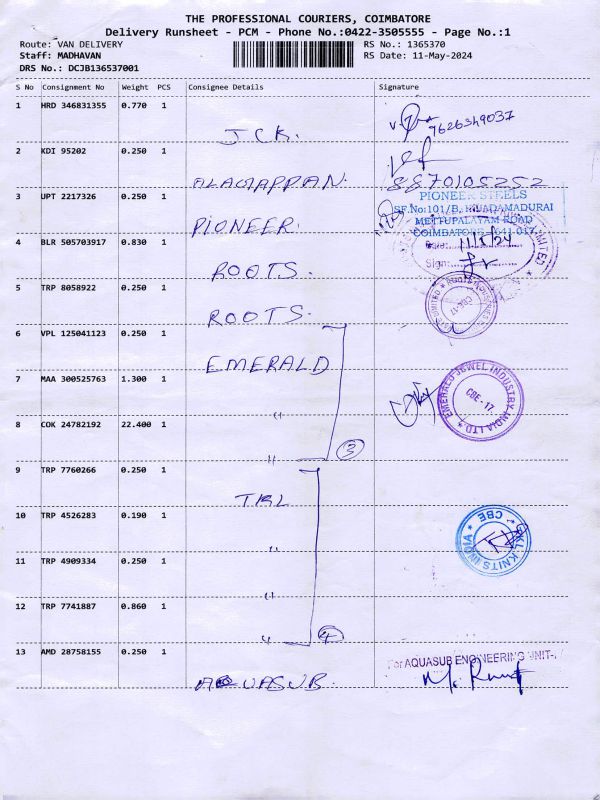 THE PROFESSIONAL COURIERS, COIMBATORE
Delivery Runsheet - PCM - Phone No.:0422-3505555 - Page No.:1
Route: VAN DELIVERY
RS No.: 1365370
Staff: MADHAVAN
RS Date: 11-May-2024
DRS No.: DCJB136537001
S No Consignment No Weight PCS Consignee Details Signature
1 HRD 346831355 0.770 1
J.CK. 9626349037
2 KDI 95202 0.250 1
ALAGAPPAN. 8870105252
3 UPT 2217326 0.250 1
PIONEER STEELS
SF.No:101/B, KUADAMADURAI
METTUPALAYAM ROAD
COIMBATORE - 641 017
PIONEER.
4 BLR 505703917 0.830 1
Date: 11/5/24
Sign:
ROOTS.
5 TRP 8058922 0.250 1
ROOTS.
6 VPL 125041123 0.250 1
EMERALD
7 MAA 300525763 1.300 1
"
EMERALD JEWEL INDUSTRY INDIA LTD.
CBE - 17
8 COK 24782192 22.400 1
" 3
9 TRP 7760266 0.250 1
TKL
10 TRP 4526283 0.190 1
"
KNITS INDIA * CBE *
11 TRP 4909334 0.250 1
"
12 TRP 7741887 0.860 1
" 4
13 AMD 28758155 0.250 1
For AQUASUB ENGINEERING UNIT-
AQUASUB.